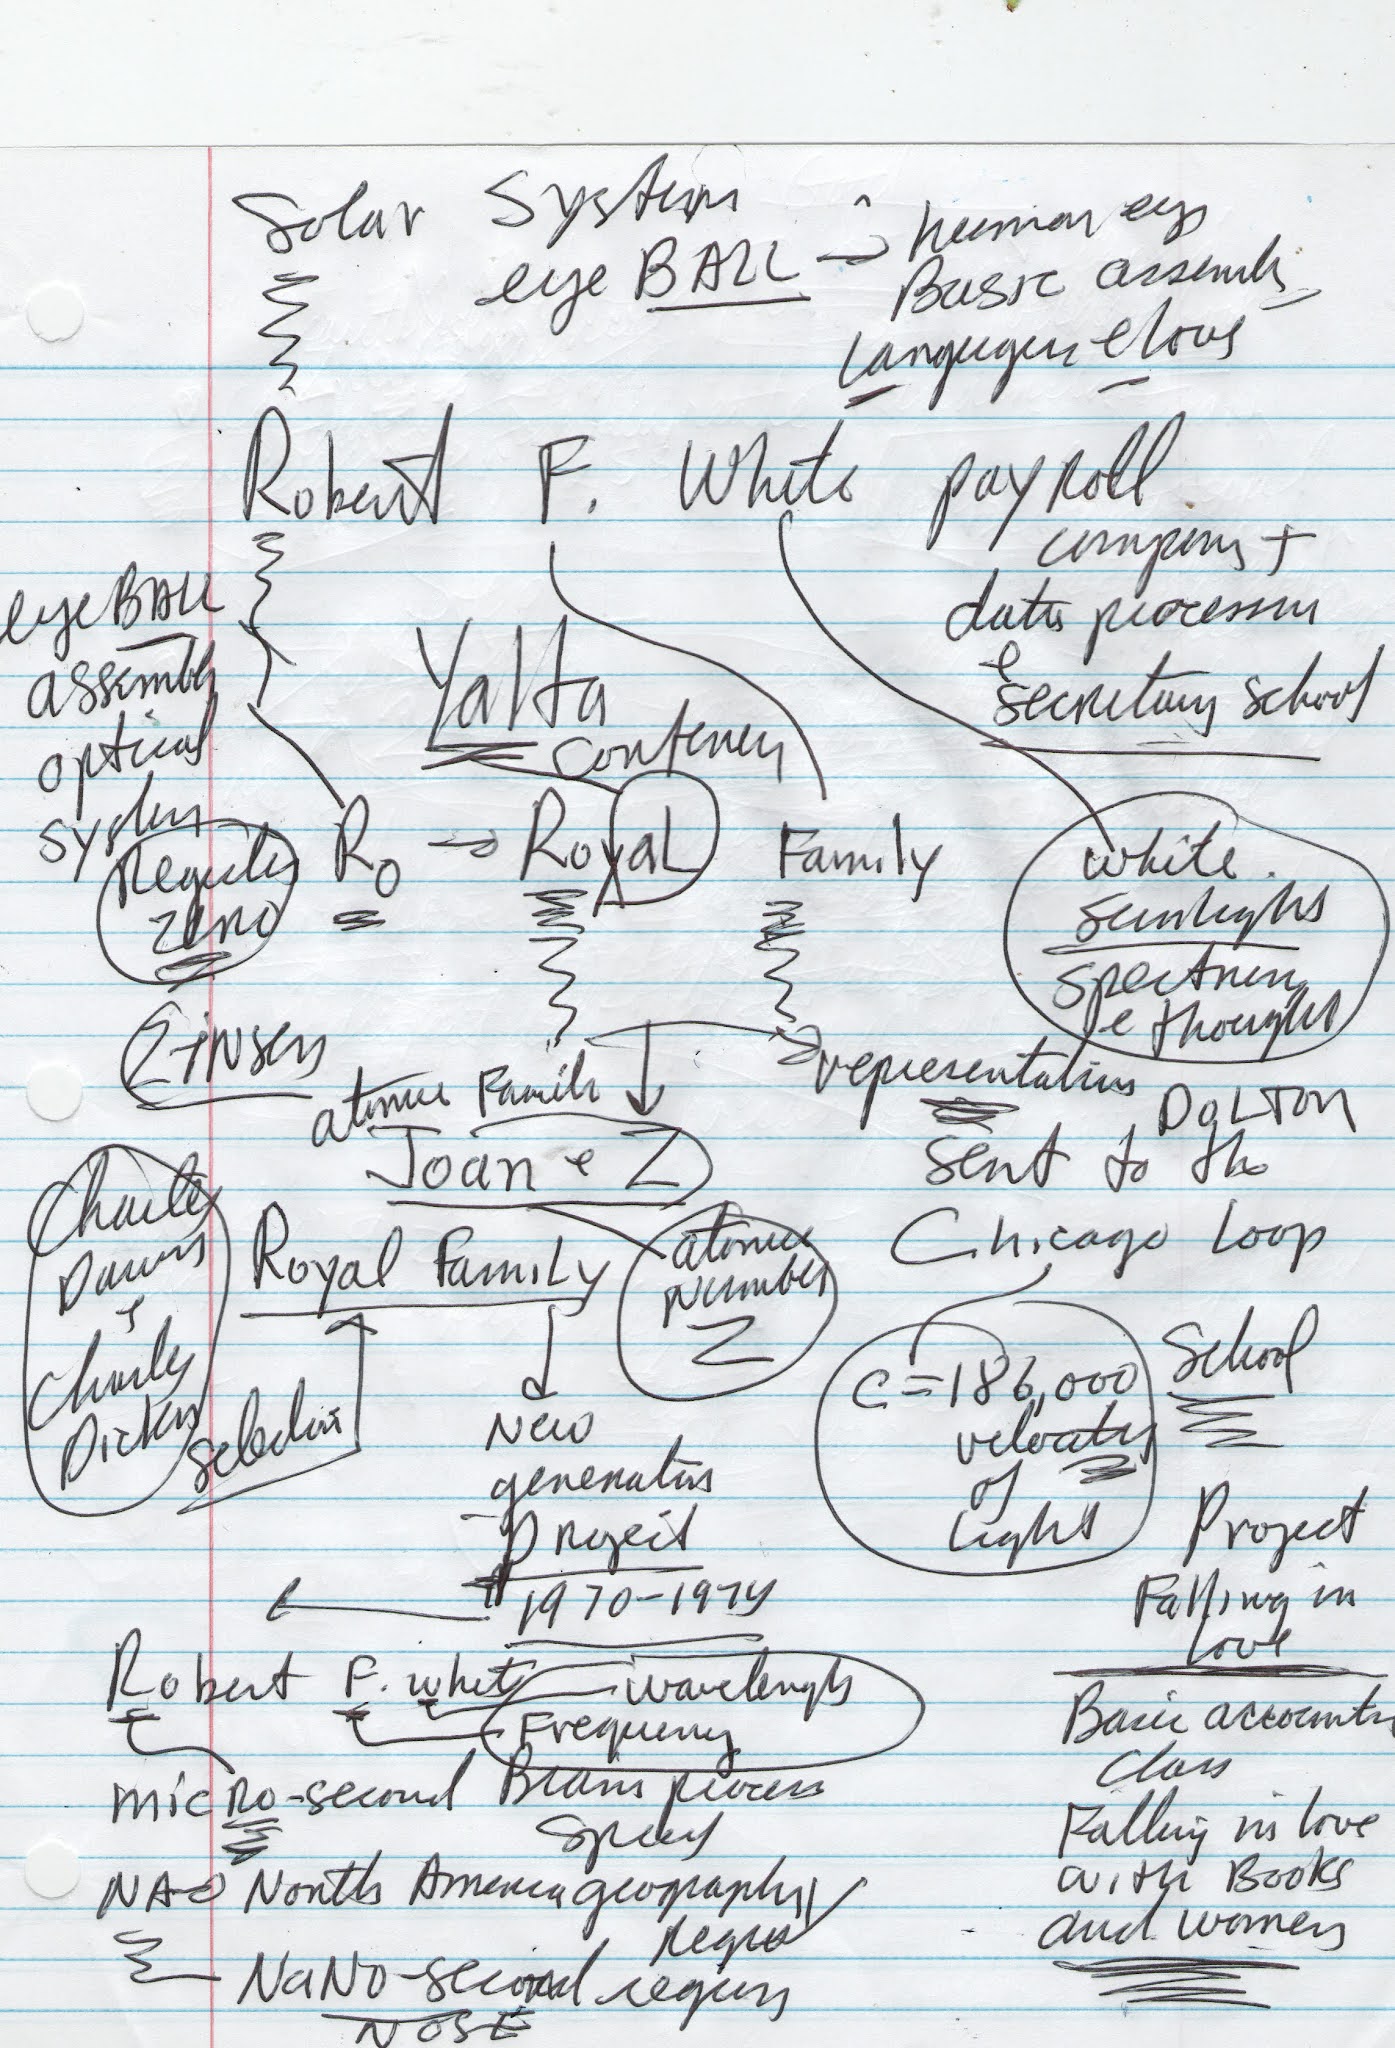 Solar System
eye BALL → human eye
Basic assembly
Language & love
Robert F. White payroll
company +
data processing
& secretary school
eyeBALL
assembly
optical
system
Yalta
Conference
Register
zero
R0 → Royal Family
white
sunlight
spectrum
& thought
ZiNSer
atomic Family
representations
Joan & Z
DaLTon
sent to the
Chicago Loop
Charles
Darwin
+
Charles
Dickens
selection
Royal Family
atomic
number
Z
C=186,000
velocity
of
light
School
New
generation
Project
1970-1974
Project
Falling in
love
Robert F. White
wavelength
Frequency
micRo-second Brain process
speed
Basic accounting
class
Falling in love
with Books
and women
NA-O North America geography
NaNo-second
NOSE